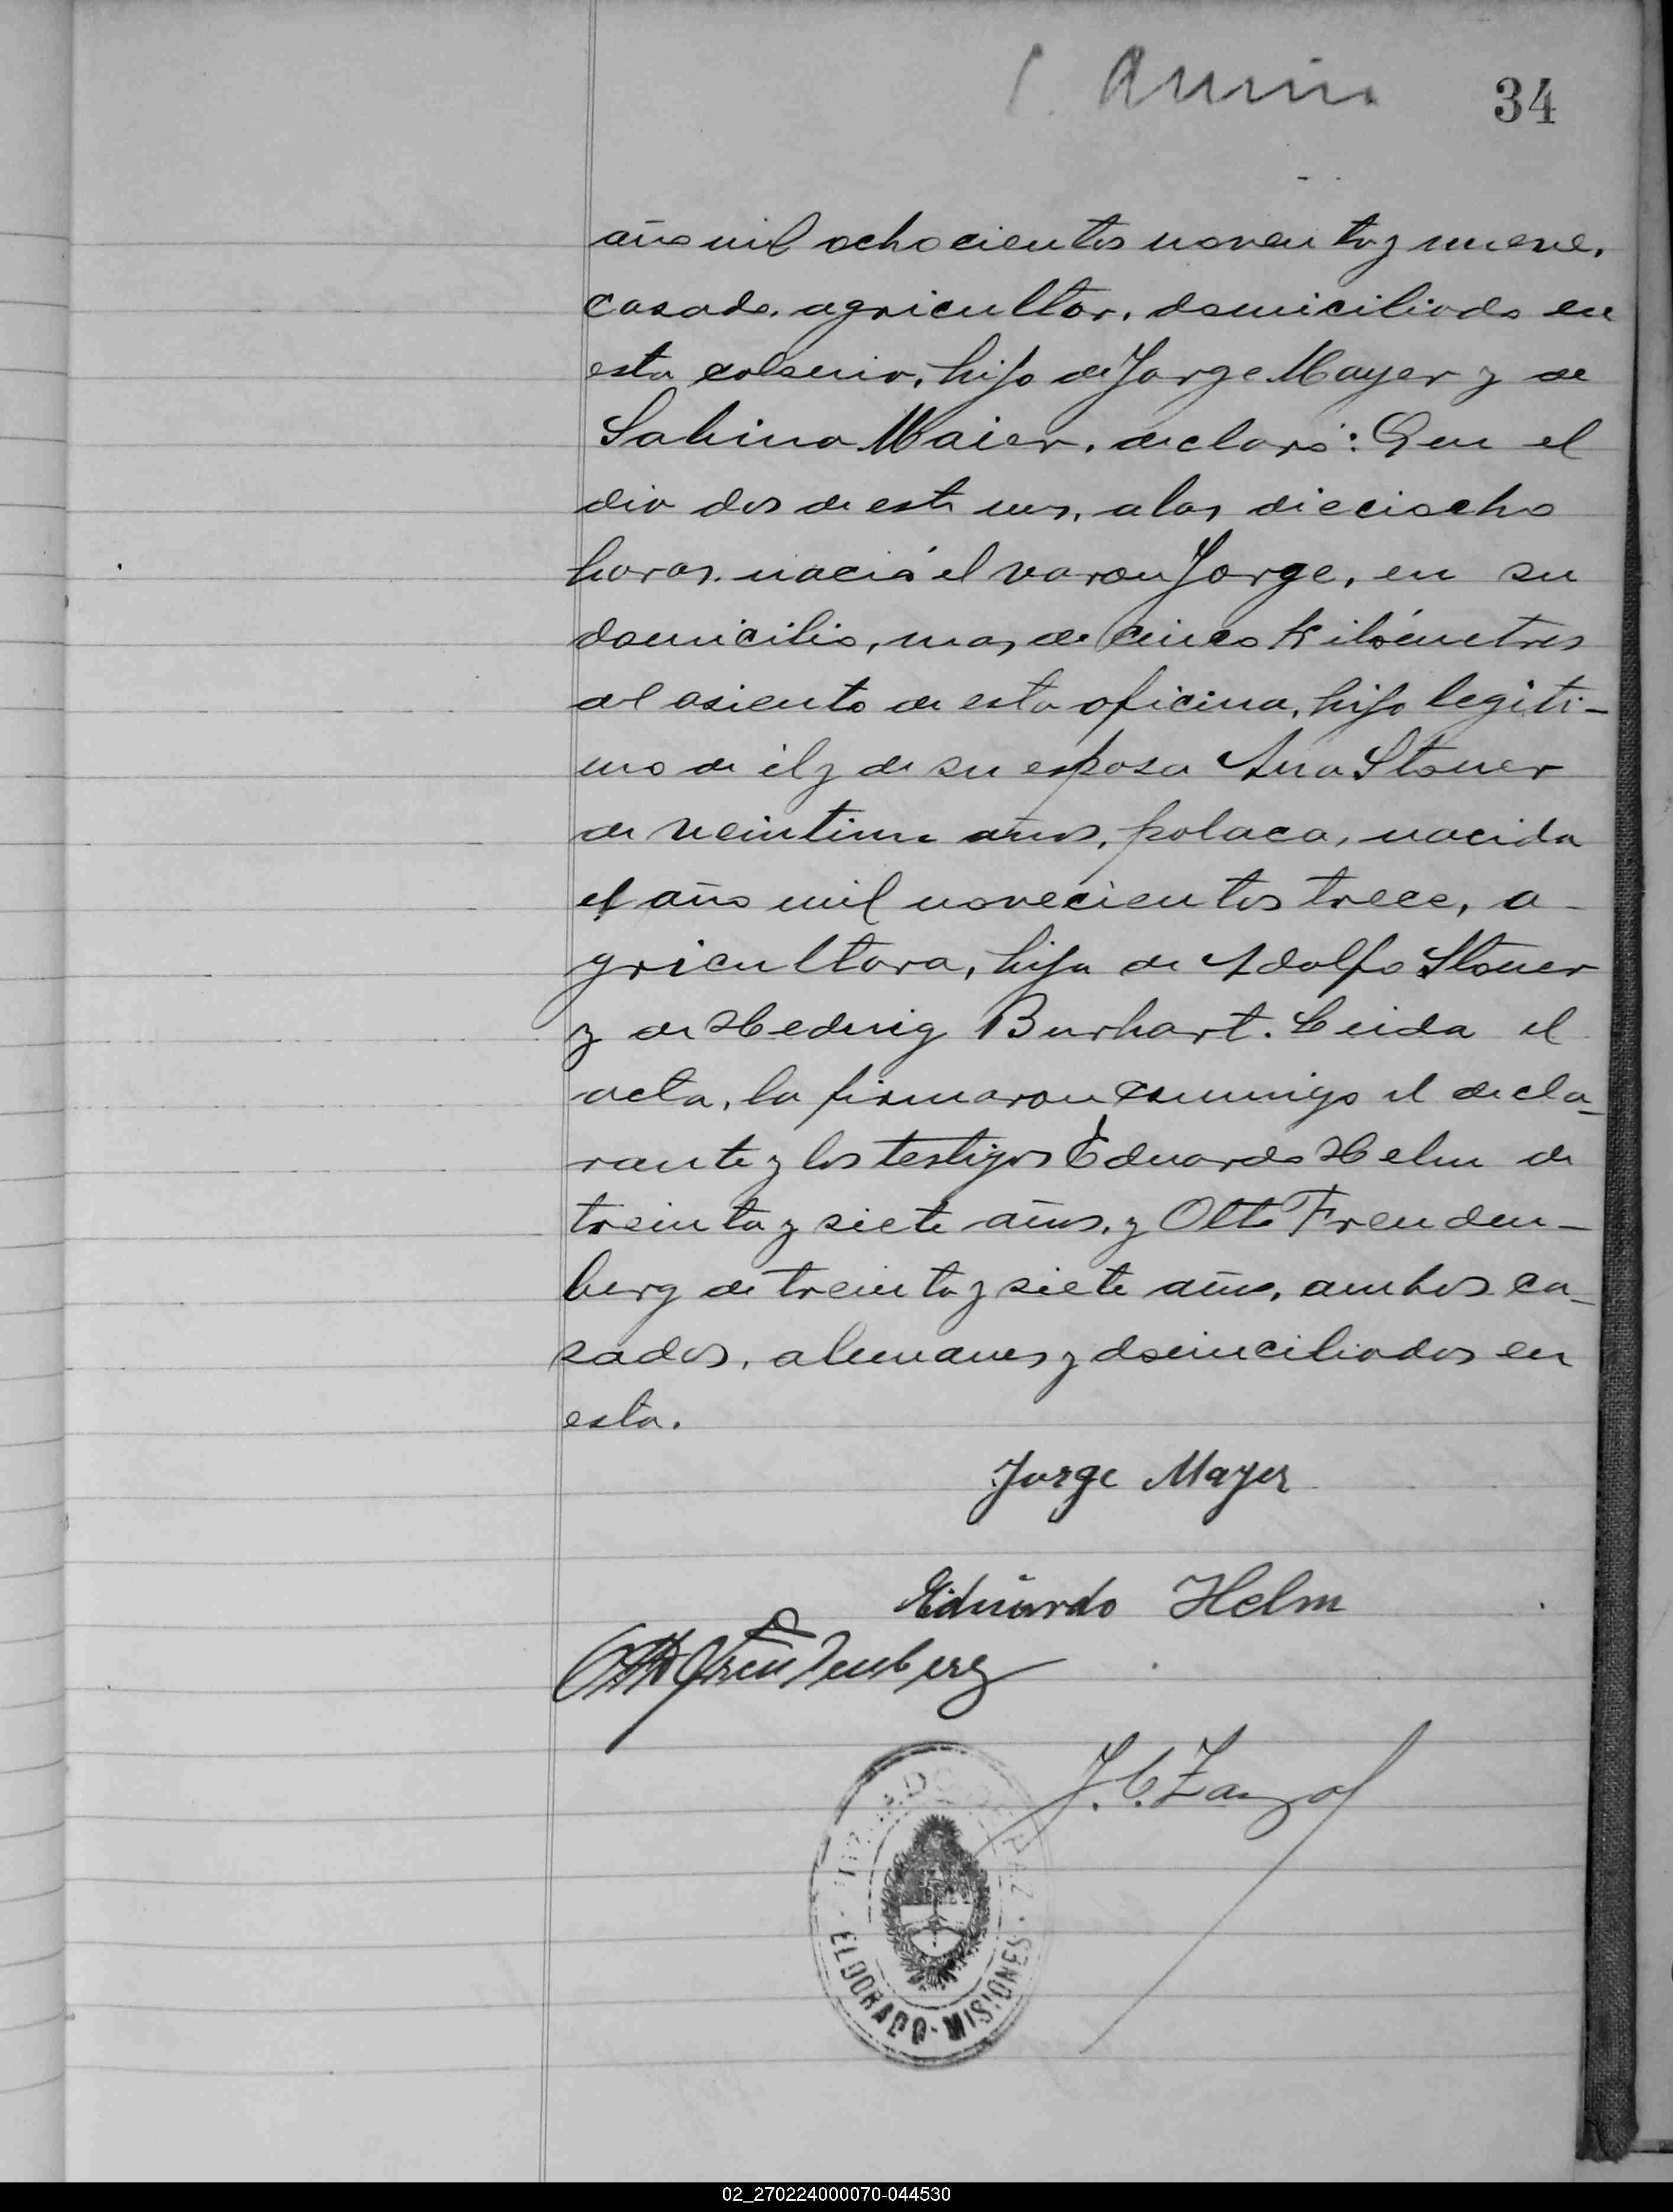 34
año mil ochocientos noventa y nueve,
casado, agricultor, domiciliado en
esta colonia, hijo de Jorge Mayer y de
Sabina Maier, declaró: Que el
dia dos de este mes, a las dieciocho
horas, nació el varon Jorge, en su
domicilio, mas de cinco kilómetros
al asiento de esta oficina, hijo legiti-
mo de él y de su esposa Ana Stoner
de veintiun años, polaca, nacida
el año mil novecientos trece, a-
gricultora, hija de Adolfo Stoner
y de Hedwig Burhart. Leida el
acta, la firmaron conmigo el decla-
rante y los testigos Eduardo Helm de
treinta y siete años, y Otto Freuden-
berg de treinta y siete años, ambos ca-
sados, alemanes y domiciliados en
esta.
Jorge Mayer
Eduardo Helm
Otto Freudenberg
J. C. Z
JUZGADO DE PAZ
ELDORADO - MISIONES
02_270224000070-044530